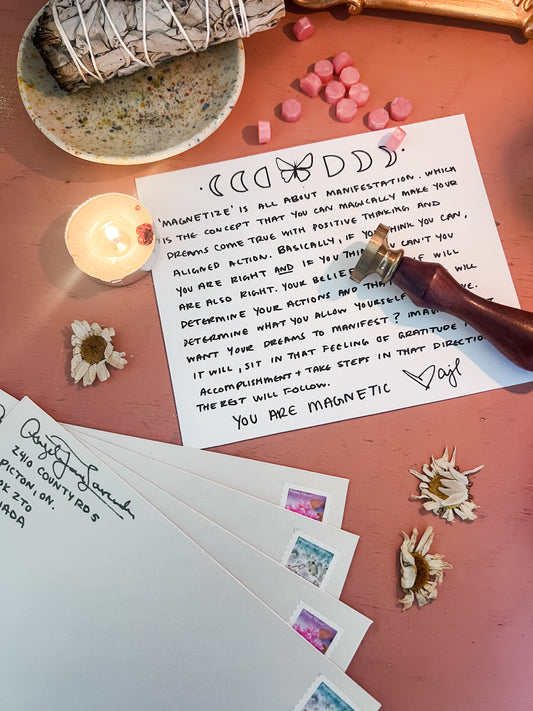 'MAGNETIZE' IS ALL ABOUT MANIFESTATION. WHICH
IS THE CONCEPT THAT YOU CAN MAGICALLY MAKE YOUR
DREAMS COME TRUE WITH POSITIVE THINKING AND
ALIGNED ACTION. BASICALLY, IF YOU THINK YOU CAN,
YOU ARE RIGHT AND IF YOU THINK YOU CAN'T YOU
ARE ALSO RIGHT. YOUR BELIEF WILL
DETERMINE YOUR ACTIONS AND THAT WILL
DETERMINE WHAT YOU ALLOW YOURSELF
WANT YOUR DREAMS TO MANIFEST?
IT WILL, SIT IN THAT FEELING OF GRATITUDE
ACCOMPLISHMENT + TAKE STEPS IN THAT DIRECTION.
THE REST WILL FOLLOW.
YOU ARE MAGNETIC ajl
2410 COUNTY RD 5
PICTON, ON.
K 2T0
NADA